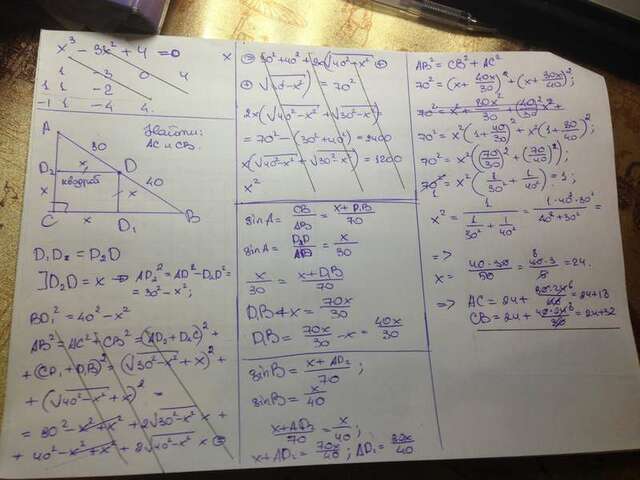 x³ - 3x² + 4 = 0
1 -3 0 4
1 1 -2
-1 1 -4 4
Найти:
AC и CB.
A
30
D₂
x
D
квадрат
x
x
40
C
x
D₁
B
D₁D₂ = D₂D
]D₂D = x => AD₂² = AD² - D₂D² =
= 30² - x²;
BD₁² = 40² - x²
AB² = AC² + CB² = (AD₂ + D₂C)² +
+ (CD₁ + D₁B)² = (√30² - x² + x)² +
+ (√40² - x² + x)² =
= 30² - x² + x² + 2√30² - x² x +
+ 40² - x² + x² + 2√40² - x² x ⊜
x
⊜ 30² + 40² + 2x(√40² - x² ⊕
⊕ √30² - x²) = 70²
2x(√40² - x² + √30² - x²) =
= 70² - (30² + 40²) = 2400
x(√40² - x² + √30² - x²) = 1200
x²
sin A = CB/AB = (x + D₁B)/70
sin A = D₂D/AD = x/30
x/30 = (x + D₁B)/70
D₁B + x = 70x/30
D₁B = 70x/30 - x = 40x/30
sin B = (x + AD₂)/70;
sin B = x/40
(x + AD₂)/70 = x/40;
x + AD₂ = 70x/40; AD₂ = 30x/40
AB² = CB² + AC²
70² = (x + 40x/30)² + (x + 30x/40)²;
70² = x²(1 + 40/30)² + x²(1 + 30/40)²;
70² = x²(70/30)² + (70/40)²;
x²(1/30² + 1/40²) = 1;
x² = 1/(1/30² + 1/40²) = (1·40²·30²)/(40² + 30²) =
=>
x = 40·30/50 = 40·3/5 = 24.
=> AC = 24 + = 24 + 18
CB = 24 + = 24 + 32